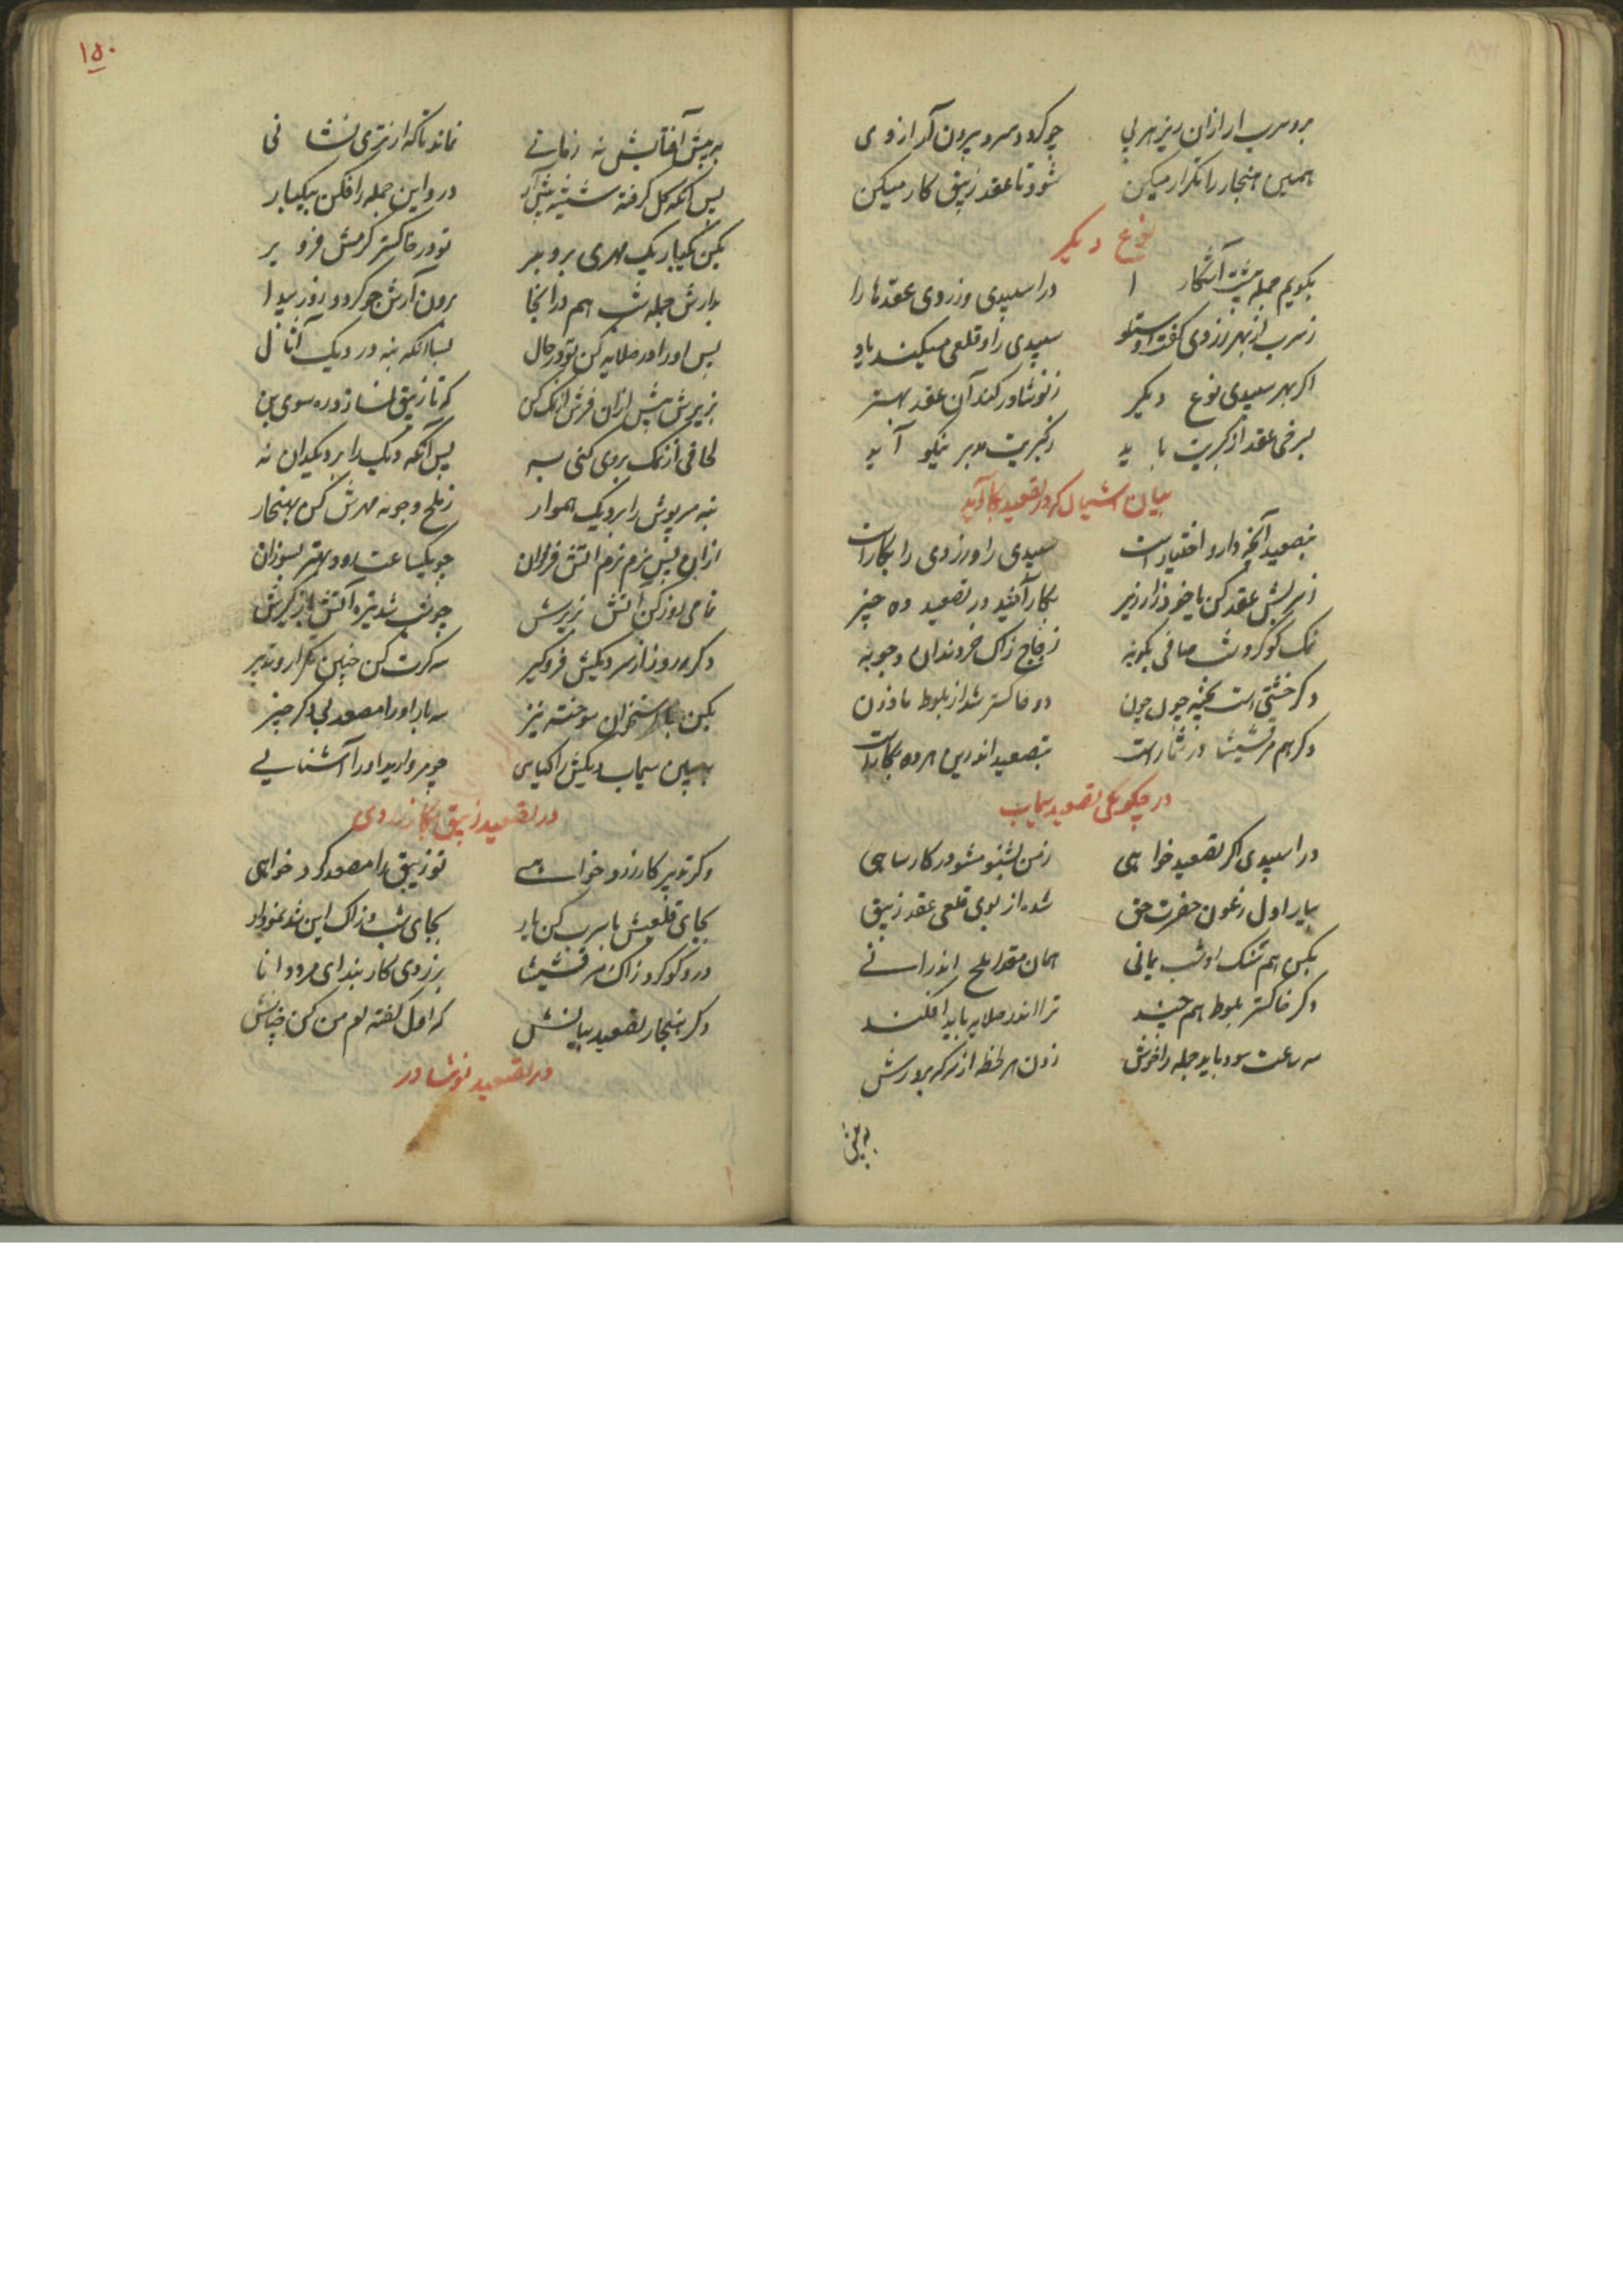 برو سرب ار ازان ریز بر پی چو کردد سرد بیرون آر از وی
همین هنجار را تکرار میکن شود تا عقد زیبق کار میکن
نوع دیگر
بگویم جمله پیشت آشکارا در اسپیدی و زردی عقدها را
زسرب از بهر زردی گفت استاد سپیدی را و قلعی میکند یاد
اگر بهر سپیدی نوع دیگر ز نوشادر کند آن عقد بهتر
بسرخی عقد از کبریت باید ز کبریت مدبر نیکو آید
بیان اشیا که در تصعید بکار آید
بتصعید آنچه دارو اختیارست سپیدی را و زردی را بکارست
بکار آیند در تصعید ده چیز
نمک گوگرد و شب صافی زجاج زاک خردندان و جونه
دگر خشتی است پخته چون دو خاکستر شد از بلوط مازن
دگر هم مرقشیشا در شمارست بتصعید اندرین هر ده بکارست
در چگونگی تصعید سیماب
در اسپیدی گر تصعید خواهی ز من بشنو مشو در کار ساهی
بیار اول زعون حضرت حق شده از بوی قلعی عقد زیبق
بکن هم سنک او شب یمانی همان مقدار ملح اندرانی
دگر خاکستر بلوط هم چند ترا اندر صلایه باید افکند
سه ساعت سود باید جمله را خوش زدن هر لحظه از سرکه برو رش
۱۵۰
به پیش آفتابش نه زمانی نماند تا که از تری نشانی
پس آنکه گل گرفته شیشه پیش آر درو این جمله را افکن بیکبار
بکن یکبار یک مهری برو بر تو در خاکستر گرمش فرو بر
بدارش جمله شب هم در انجا برون آرش چو گردد روز پیدا
پس او را در صلایه کن تو در حال پس آنکه بنه در دیک آثال
بزیرش پیش ازان فرش نمک کن که تا زیبق نسازد ره سوی بن
لحافی از نمک بروی کنی به پس آنکه دیک را بر دیکدان نه
بنه سرپوش را بر دیک هموار ز ملح و جونه مهرش کن بهنجار
ازان پس نرم نرم آتش فروزان چو یکساعت رود بهتر بسوزان
تمامی روز کن آتش بزیرش چو شب شد تیره آتش باز گیرش
دگر روز از سر دیکش فرو گیر سه کرت کن چنین تکرار و تدبیر
بکن با استخوان سوخته نیز سه بار او را مصعد بی دگر چیز
به بین سیماب دیکش را کیابی چو مروارید او را آشنایی
در تصعید زیبق بکار زردی
وگر تدبیر کار زرد خواهی تو زیبق را مصعد کرد خواهی
بجای قلعیش با سرب کن یار بجای شب و زاک این شد نمودار
درو گوگرد و زاک و مرقشیشا بزردی کار بند ای مرد دانا
دگر هنجار تصعید بیانش که اول گفته ام من کن چنانش
در تصعید نوشادر